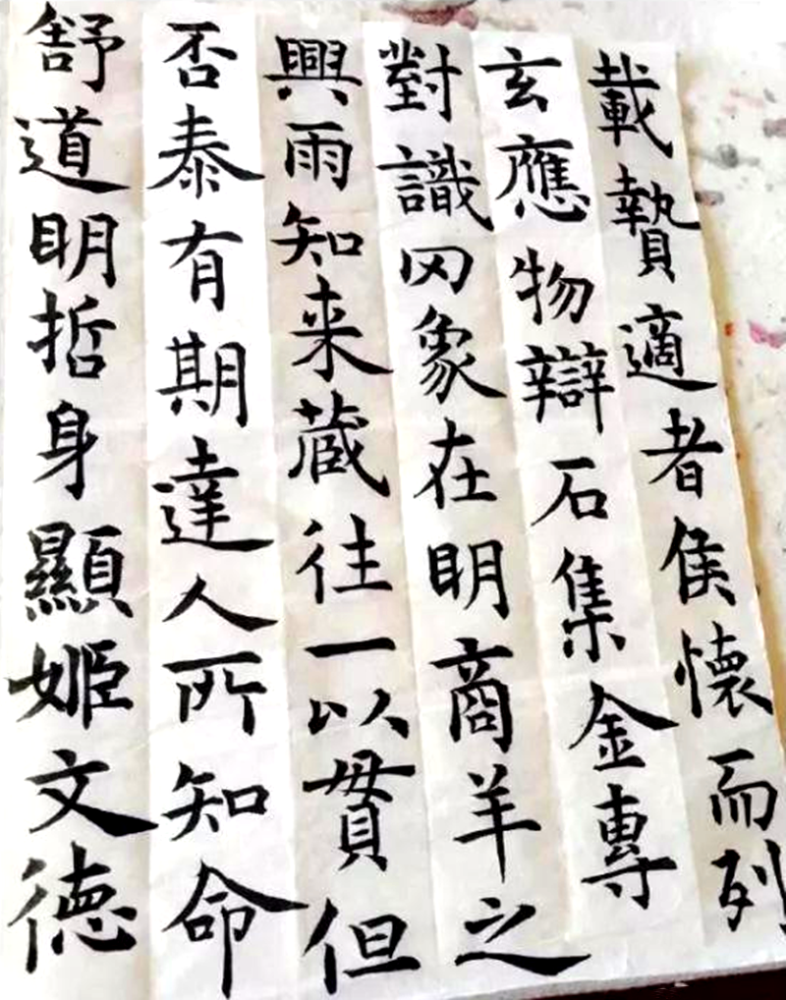 載贄適者侯懷而列
玄應物辯石集金專
對識罔象在明商羊之
興雨知来蔵往一以貫但
否泰有期達人所知命
舒道明哲身顯姬文德